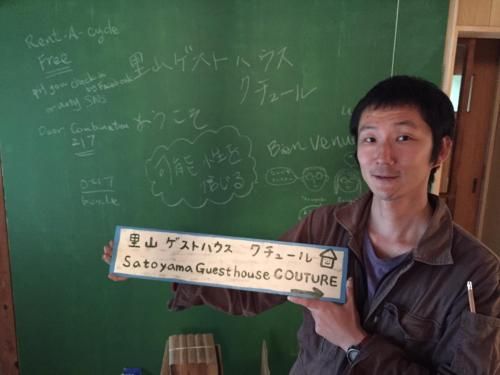 Rent-A-cycle
Free
if you check-in
by Facebook
or any SNS
Door Combination
217
0217
里山ゲストハウス
クチュール
ようこそ
可能性を
信じる
Bienvenue
里山 ゲストハウス クチュール
Satoyama Guesthouse COUTURE